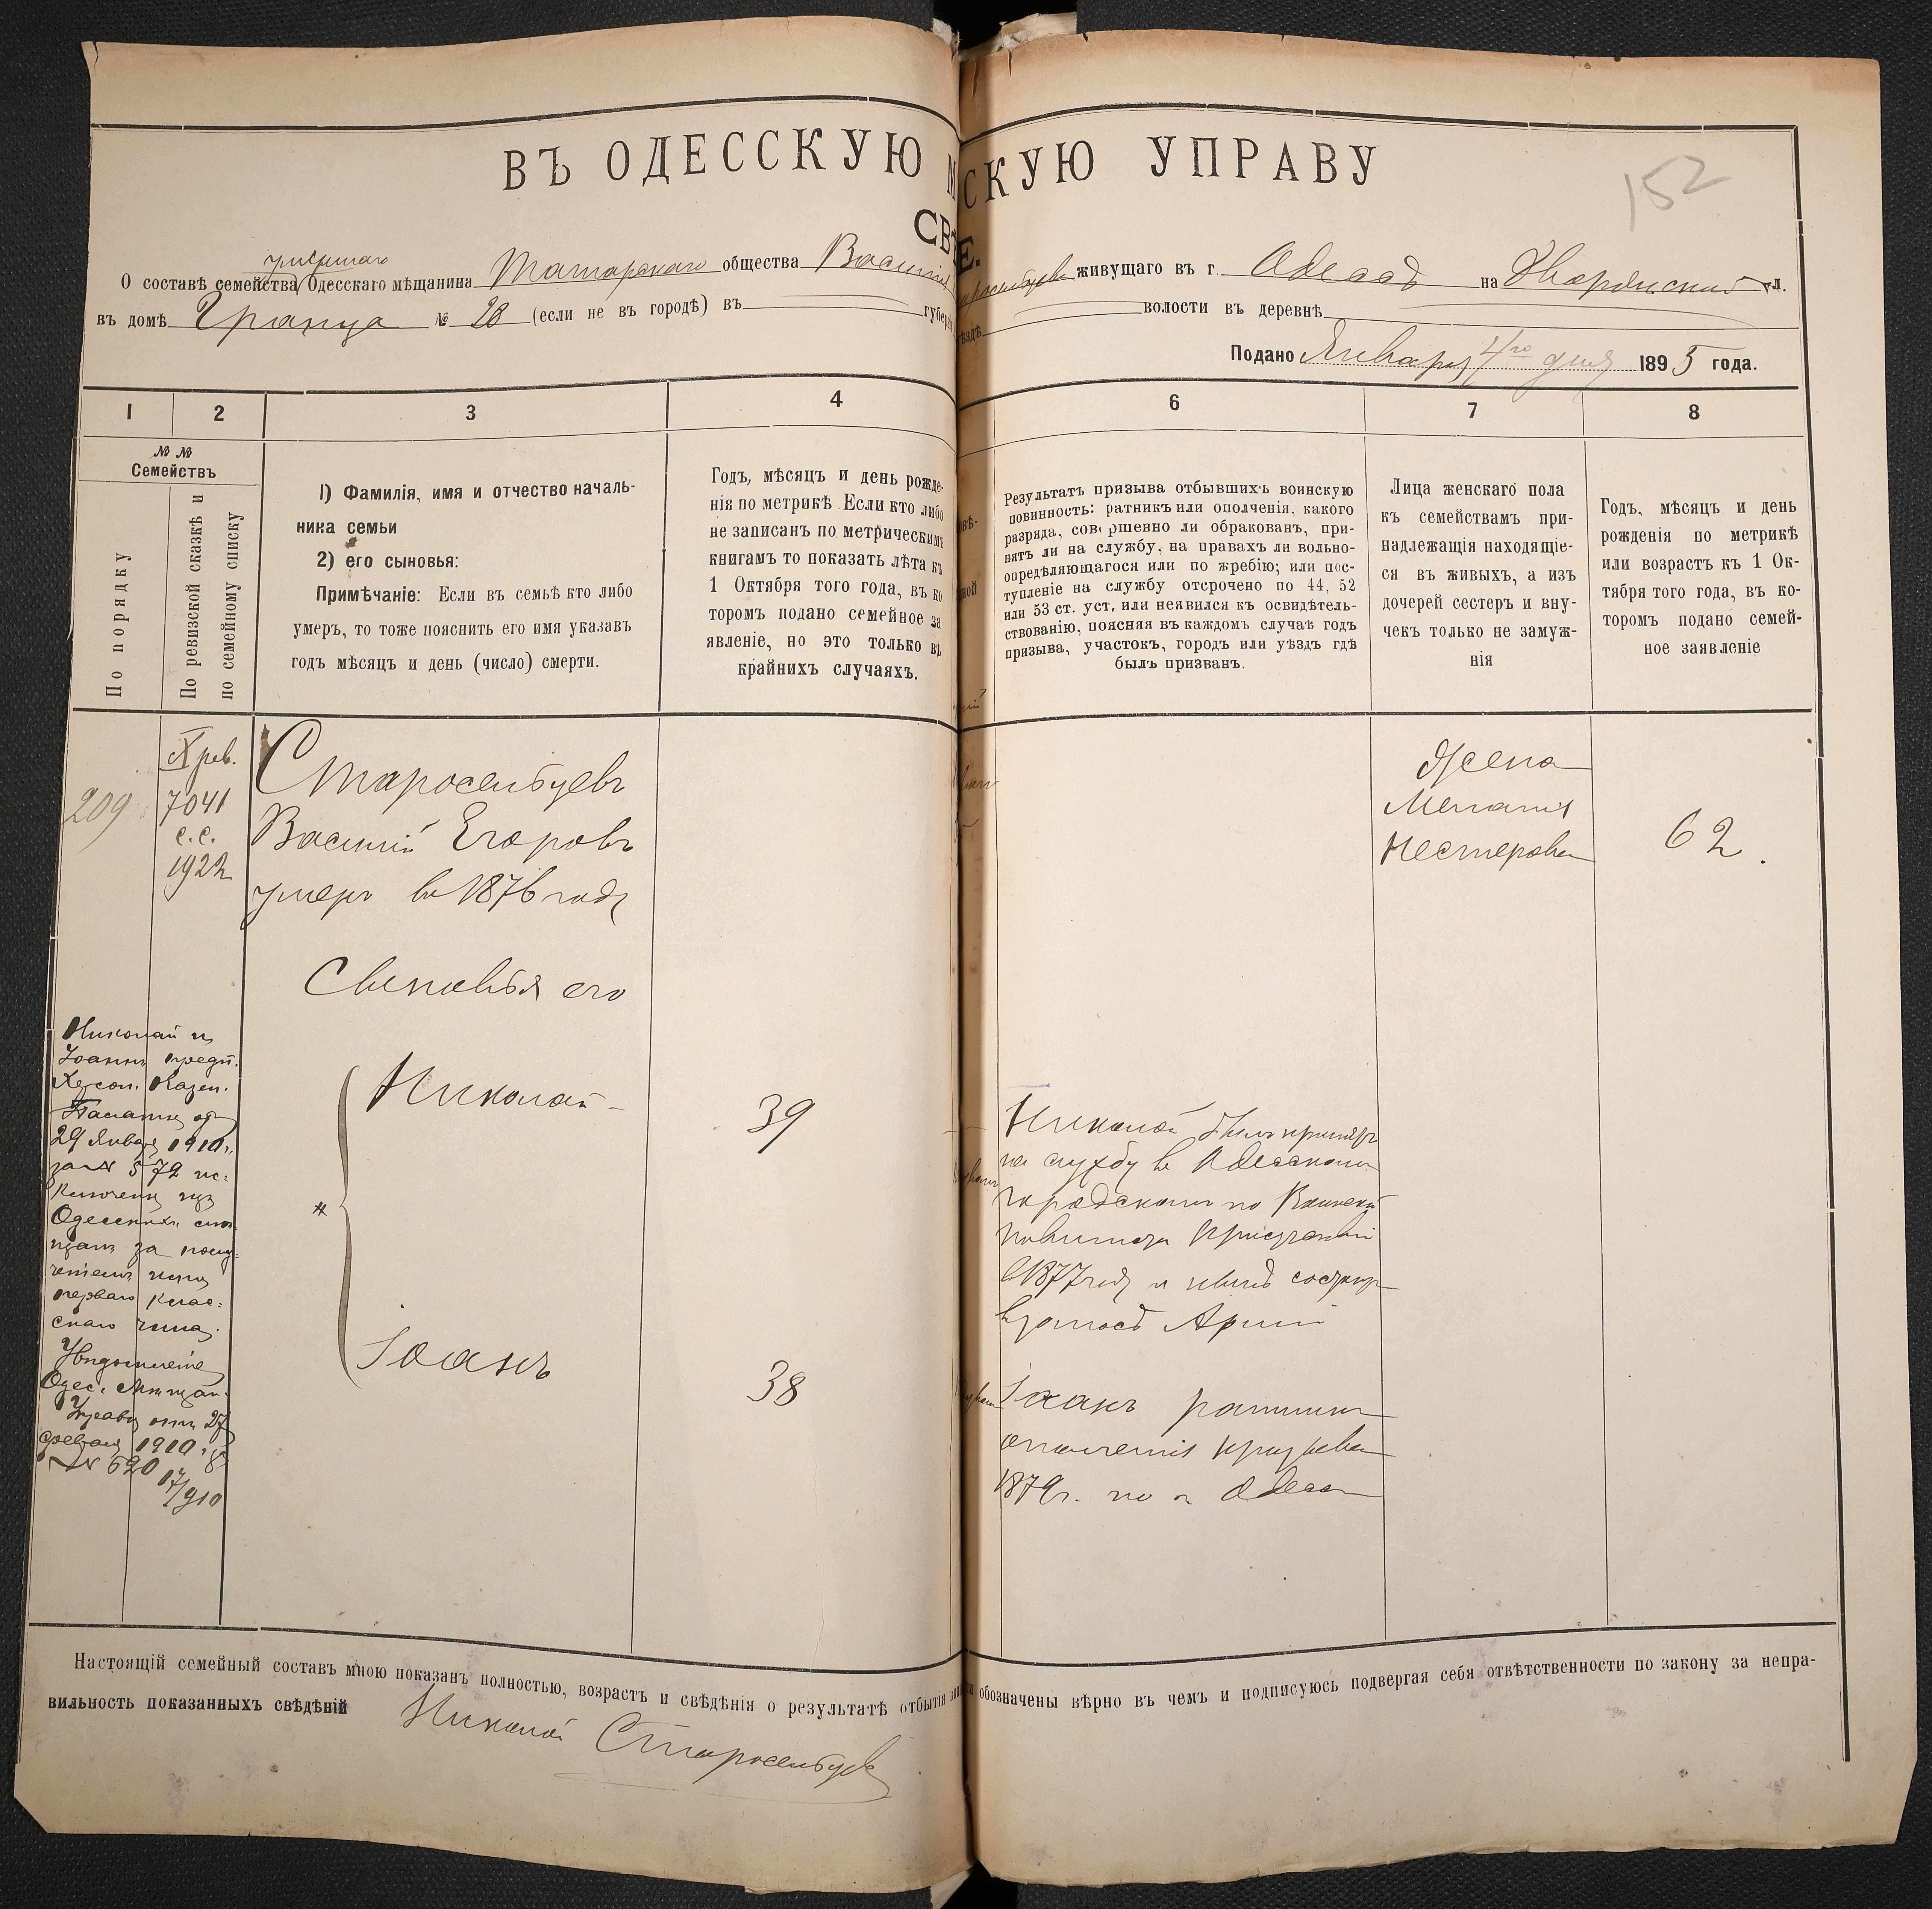 ВЪ ОДЕССКУЮ М
СКУЮ УПРАВУ
152
СВѢ
Е.
умершаго
О составѣ семейства Одесскаго мѣщанина Татарскаго общества Василія
живущаго въ г. Одессѣ на Дворянской ул.
въ домѣ № 28 (если не въ городѣ) въ губерн
ѣздѣ волости въ деревнѣ
Подано Января 4го дня 1895 года.
1 2 3 4
6 7 8
№ №
Семействъ
По порядку
По ревизской сказкѣ и
по семейному списку
1) Фамилія, имя и отчество началь-
ника семьи
2) его сыновья:
Примѣчаніе: Если въ семьѣ кто либо
умеръ, то тоже пояснить его имя указавъ
годъ мѣсяцъ и день (число) смерти.
Годъ, мѣсяцъ и день рожде-
нія по метрикѣ Если кто либо
не записанъ по метрическимъ
книгамъ то показать лѣта къ
1 Октября того года, въ ко
торомъ подано семейное за
явленіе, но это только въ
крайнихъ случаяхъ.
Результатъ призыва отбывшихъ воинскую
повинность: ратникъ или ополченія, какого
разряда, совершенно ли обракованъ, при-
нятъ ли на службу, на правахъ ли вольно-
опредѣляющагося или по жребію; или пос-
тупленіе на службу отсрочено по 44, 52
или 53 ст. уст. или неявился къ освидѣтель-
ствованію, поясняя въ каждомъ случаѣ годъ
призыва, участокъ, городъ или уѣздъ гдѣ
былъ призванъ.
Лица женскаго пола
къ семействамъ при-
надлежащія находящіе-
ся въ живыхъ, а изъ
дочерей сестеръ и вну-
чекъ только не замуж-
нія
Годъ, мѣсяцъ и день
рожденія по метрикѣ
или возрастъ къ 1 Ок-
тября того года, въ ко-
торомъ подано семей-
ное заявленіе
209
X рев.
7041
с.с.
1922
Старосельцевъ
Василій Егоровъ
умеръ въ 1876 году
Сыновья его
Николай
39
Іоанъ
38
Николай и
Іоаннъ предп.
Херсон. Казен.
Палаты отъ
29 Января 1910 г.
за № 572 ис-
ключены изъ
Одесскихъ мѣ-
щанъ за полу-
ченіемъ ими
перваго клас-
снаго чина.
Увѣдомленіе
Одес. Мѣщан.
Управы отъ 27
февраля 1910 г.
№ 620
17/910
Николай былъ принятъ
на службу въ Одесскомъ
городскомъ по Воинской
повинности Присутствіи
въ 1877 году и нынѣ состоитъ
въ запасѣ Арміи
Іоанъ ратникъ
ополченія призыва
1879 г. по г. Одессѣ
Жена
Меланія
Нестерова
62.
Настоящій семейный составъ мною показанъ полностью, возрастъ и свѣдѣнія о результатѣ отбытія
обозначены вѣрно въ чемъ и подписуюсь подвергая себя отвѣтственности по закону за непра-
вильность показанныхъ свѣдѣній
Николай Старосельцевъ